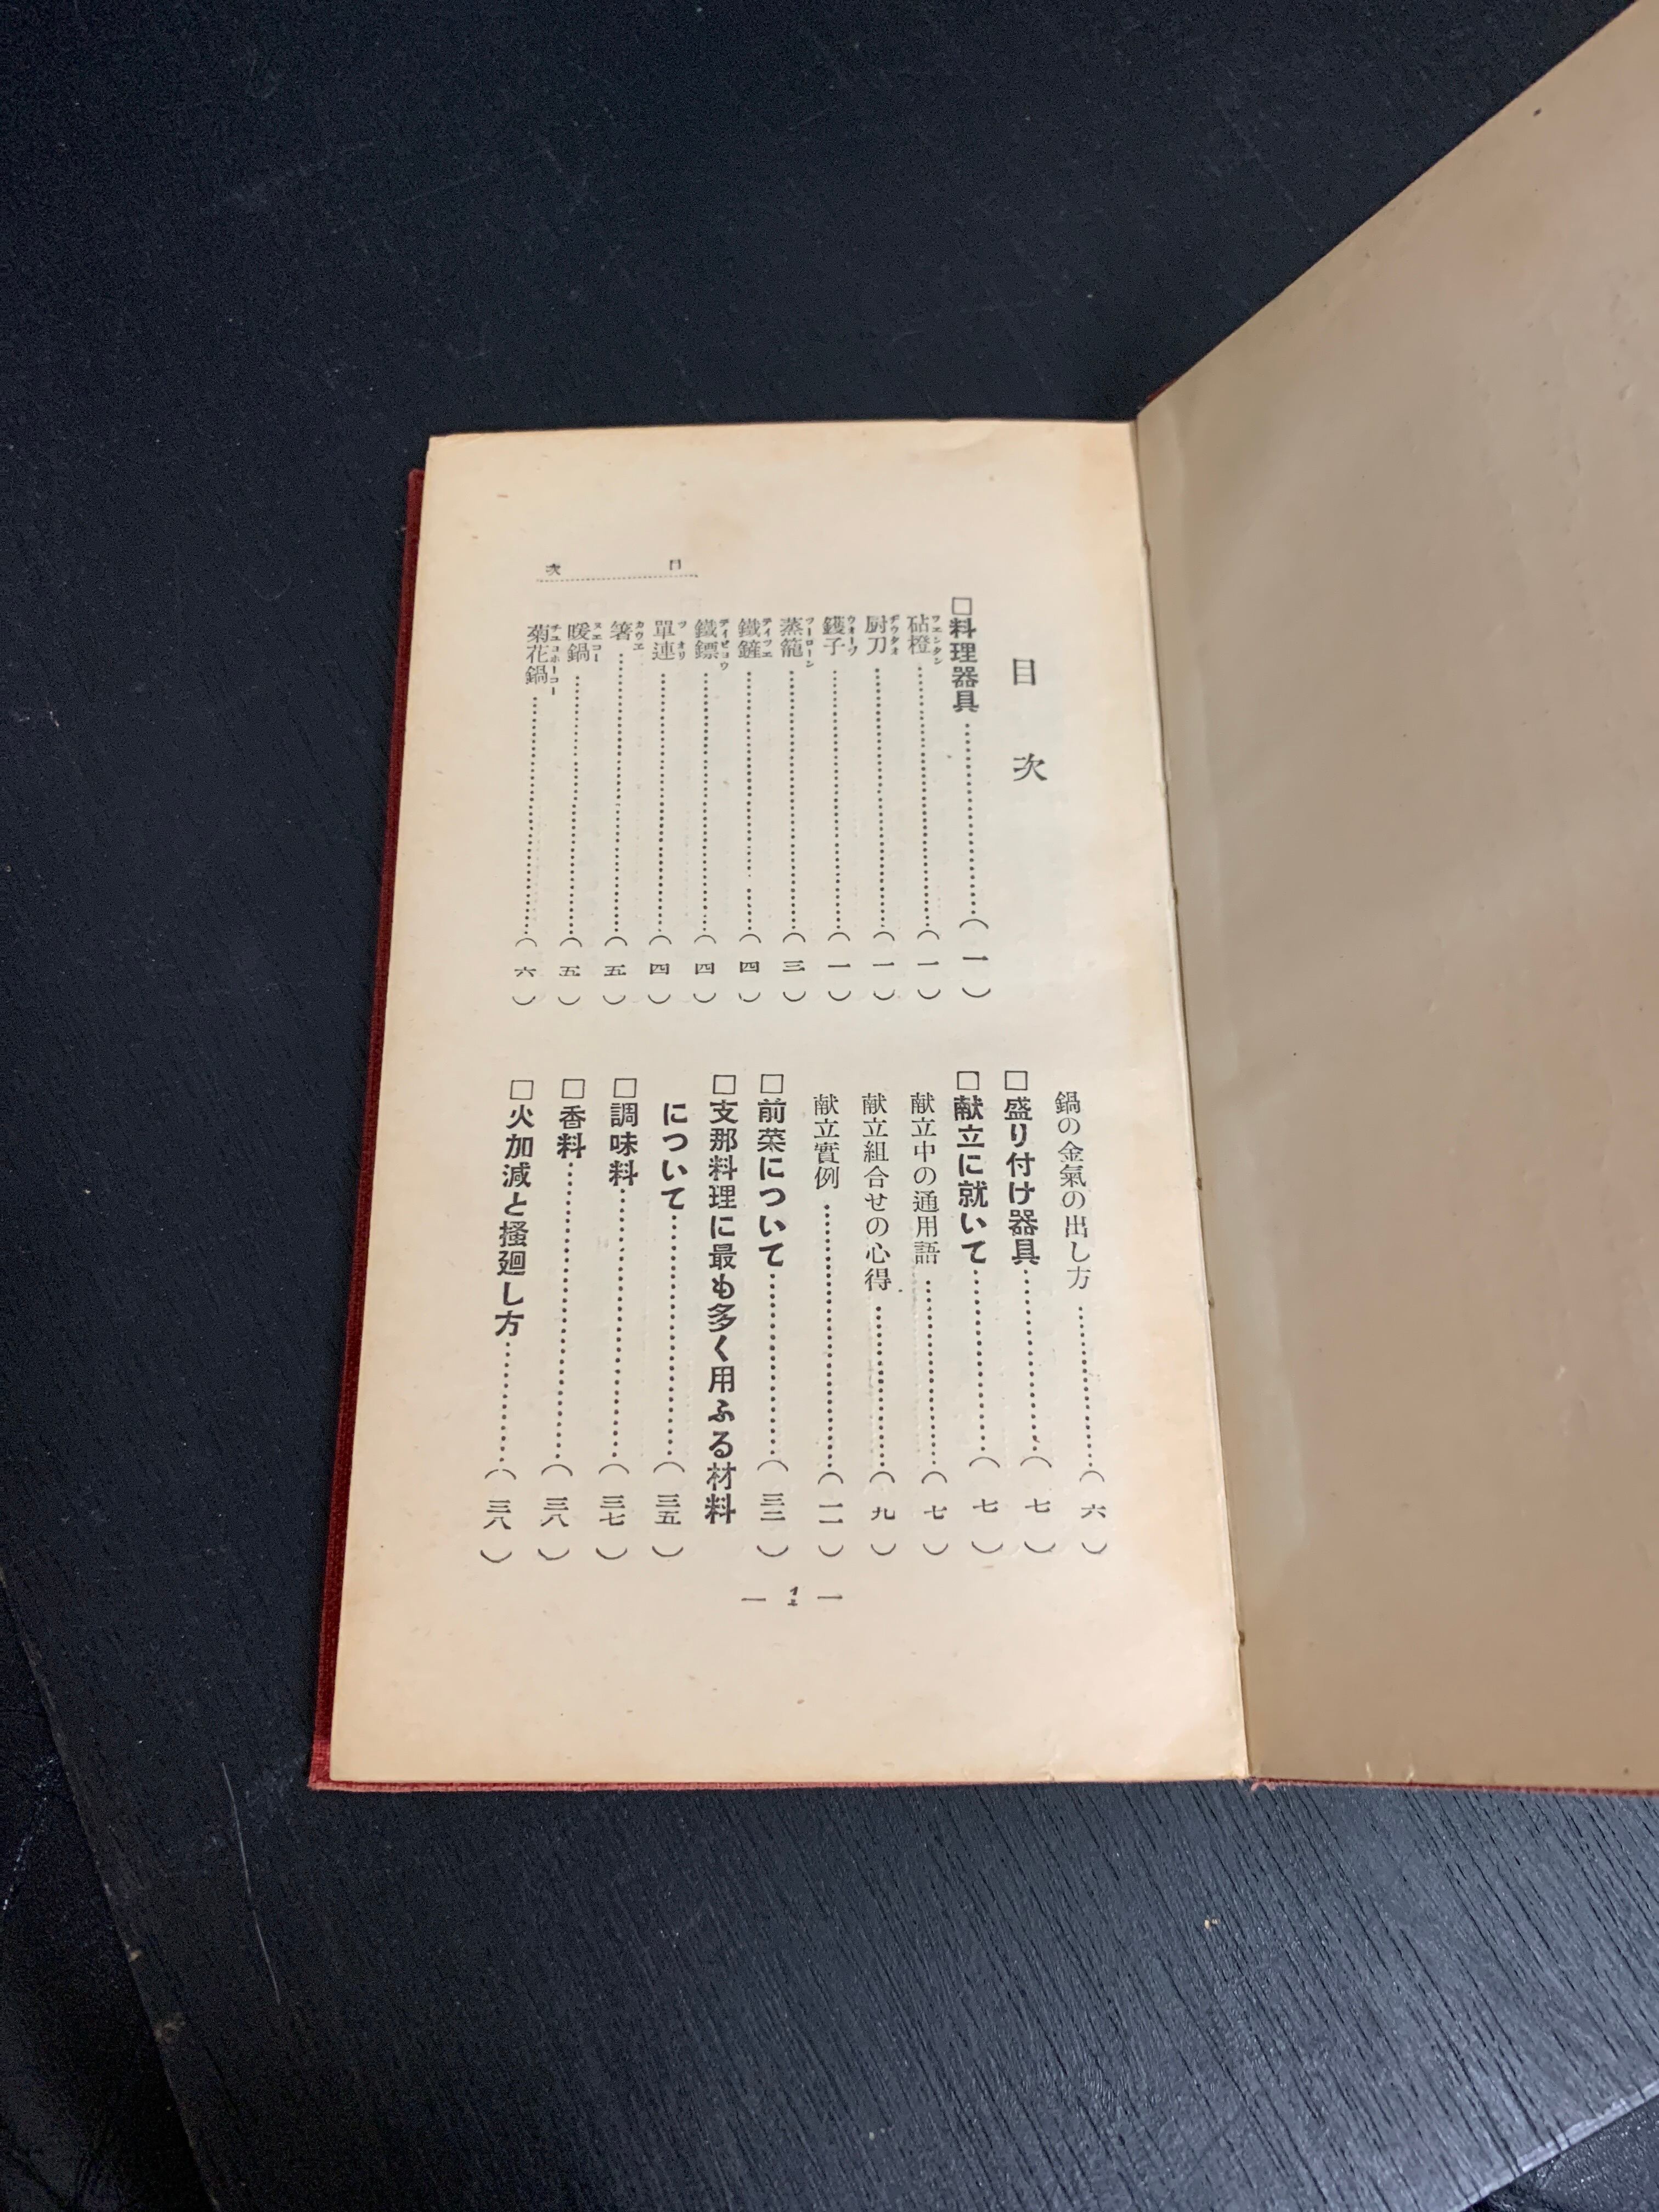 目次
□料理器具…………(一)
砧橙…………(一)
厨刀…………(一)
鑊子…………(一)
蒸籠…………(三)
鐵鏟…………(四)
鐵鏢…………(四)
單連…………(四)
箸…………(五)
暖鍋…………(五)
菊花鍋…………(六)
鍋の金氣の出し方…………(六)
□盛り付け器具…………(七)
□献立に就いて…………(七)
献立中の通用語…………(七)
献立組合せの心得…………(九)
献立實例…………(一一)
□前菜について…………(三二)
□支那料理に最も多く用ふる材料
について…………(三五)
□調味料…………(三七)
□香料…………(三八)
□火加減と搔廻し方…………(三八)
目次
— 1 —